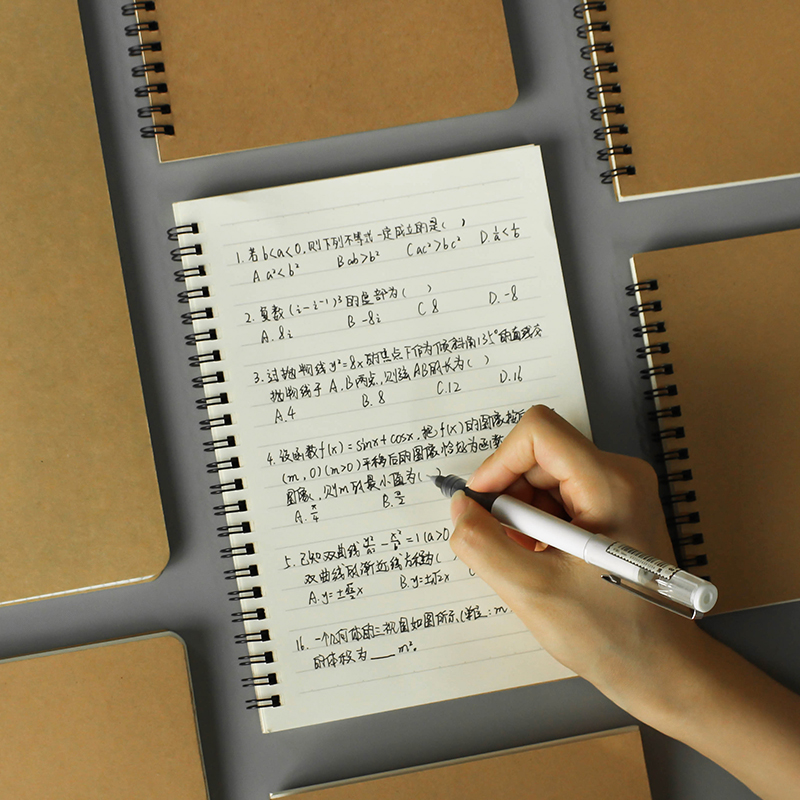 1. 若 b<a<0, 则下列不等式一定成立的是( )
A. a²<b² B ab>b² C ac²>bc² D. 1/a<1/b
2. 复数 (i-i⁻¹)³ 的虚部为( )
A. 8i B. -8i C 8 D. -8
3. 过抛物线 y²=8x 的焦点下作为倾斜角135°的直线交
抛物线于 A. B两点, 则弦AB的长为( )
A. 4 B. 8 C. 12 D. 16
4. 设函数 f(x)=sinx+cosx, 把 f(x) 的图像按
(m, 0)(m>0) 平移后的图像恰好为函数
图像, 则m的最小值为( )
A. π/4 B. π/2
5. 已知双曲线 -=1(a>0
双曲线的渐近线方程为(
A. y=± x B. y=± x C
16. 一个几何体的三视图如图所示, (单位: m
的体积为 ___ m².